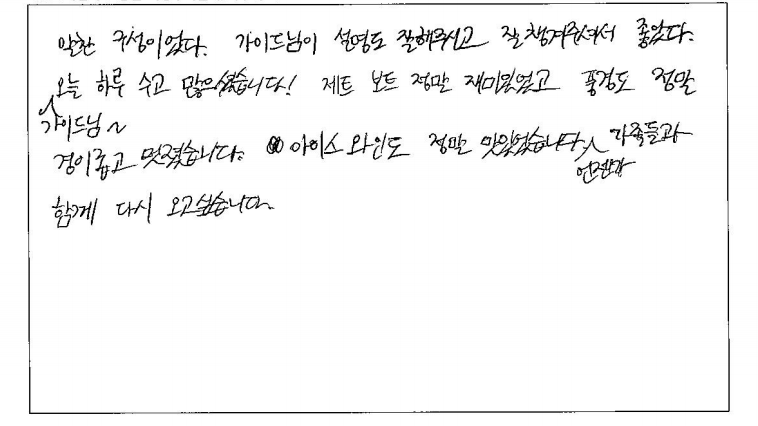 알찬 구성이었다. 가이드님이 설명도 잘해주시고 잘 챙겨주셔서 좋았다.
오늘 하루 수고 많으셨습니다! 제트 보트 정말 재미있었고 풍경도 정말
가이드님~
경이롭고 멋졌습니다. 아이스와인도 정말 맛있었습니다. 가족들과
언젠가
함께 다시 오고싶습니다.